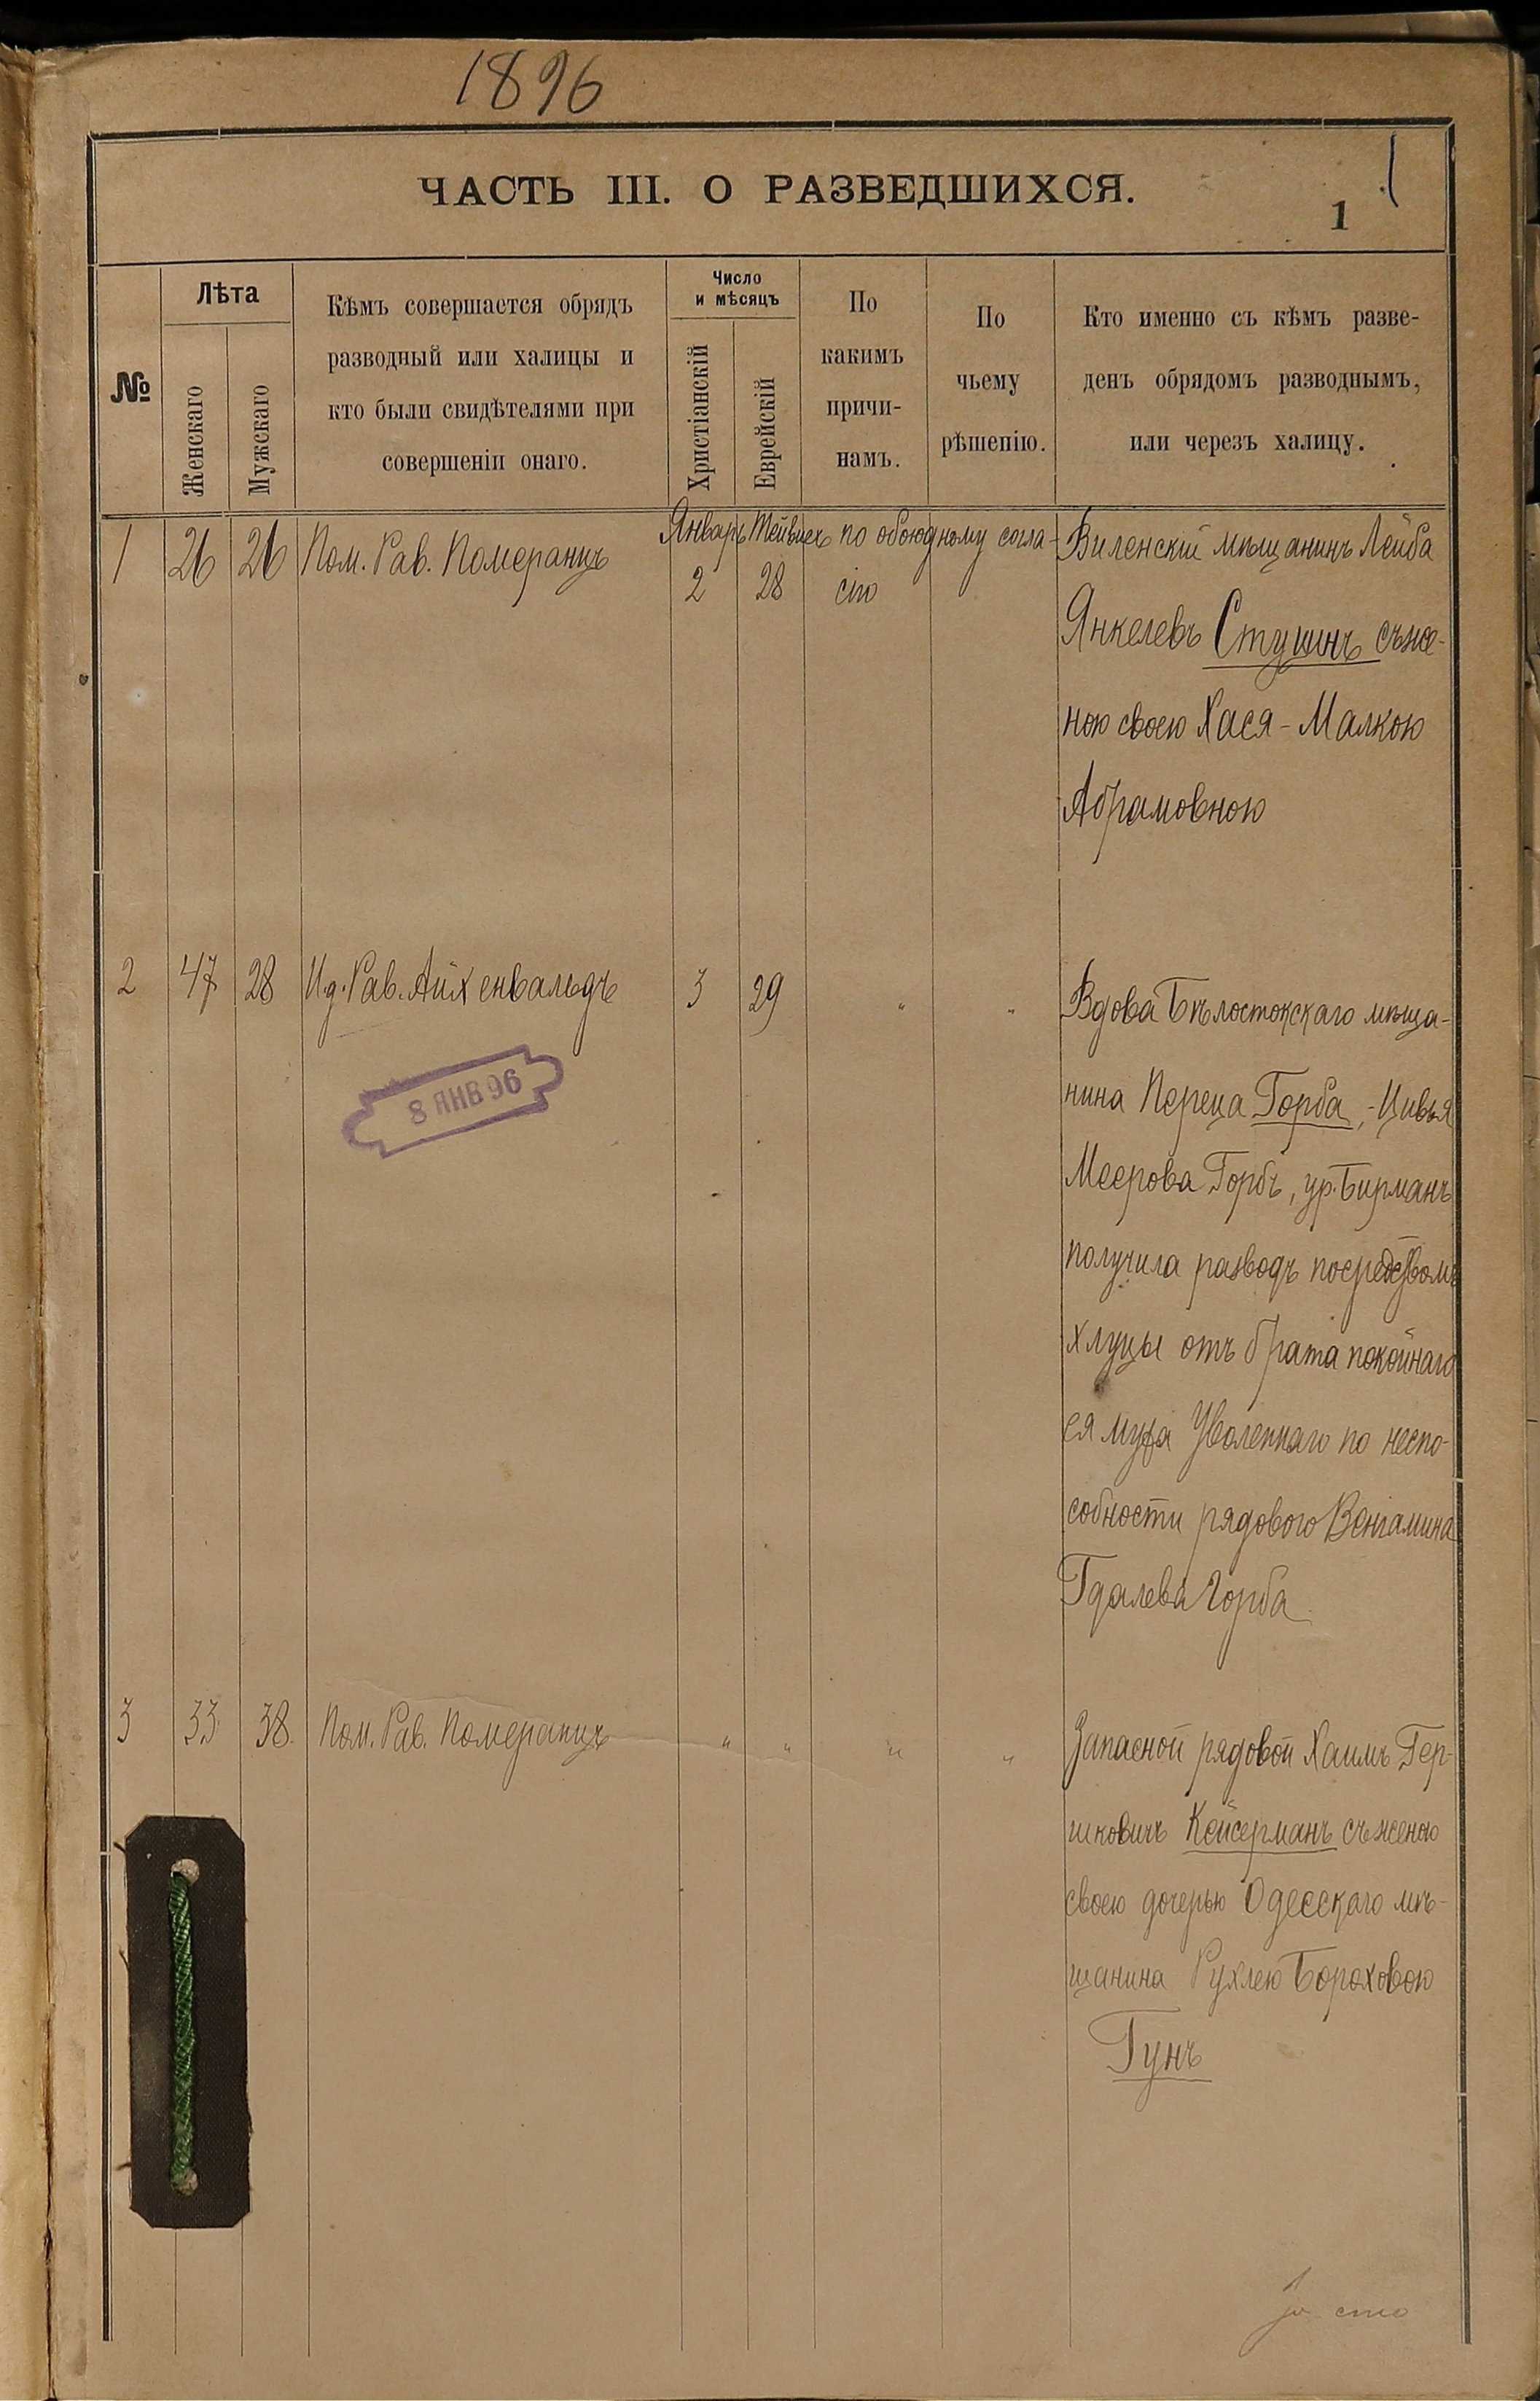 1896
ЧАСТЬ III. О РАЗВЕДШИХСЯ.
1
№
Лѣта
Женскаго
Мужскаго
Кѣмъ совершается обрядъ
разводный или халицы и
кто были свидѣтелями при
совершеніи онаго.
Число
и мѣсяцъ
Христіанскій
Еврейскій
По
какимъ
причи-
намъ.
По
чьему
рѣшенію.
Кто именно съ кѣмъ разве-
денъ обрядомъ разводнымъ,
или черезъ халицу.
1 26 26 Пом. Рав. Померанцъ Январь Тейвисъ по обоюдному согла-
2 28 сію
Виленскій мѣщанинъ Лейба
Янкелевъ Ступинъ съ же-
ною своею Хася-Малкою
Абрамовною
2 47 28 И.д. Рав. Айхенвальдъ 3 29 " "
8 ЯНВ 96
Вдова Бѣлостокскаго мѣща-
нина Переца Горба,-Цивья
Меерова Горбъ, ур. Бирманъ
получила разводъ посредствомъ
хлуцы отъ брата покойнаго
ея мужа Уволеннаго по неспо-
собности рядового Веніамина
Гдалева Горба
3 33 38. Пом. Рав. Померанцъ " " " "
Запасной рядовой Хаимъ Гер-
шковичъ Кейсерманъ съ женою
своею дочерью Одесскаго мѣ-
щанина Рухлею Бороховою
Гунъ